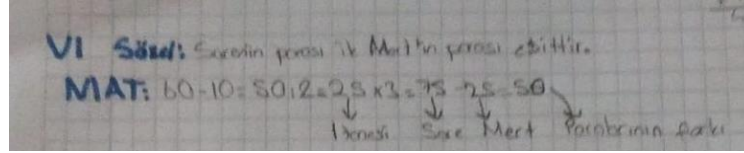 VI Sözel: Sare'nin parası ile Mert'in parası eşittir.
MAT: 60-10=50:2=25x3=75-25=50
1 tanesi Sare Mert Paralarının farkı